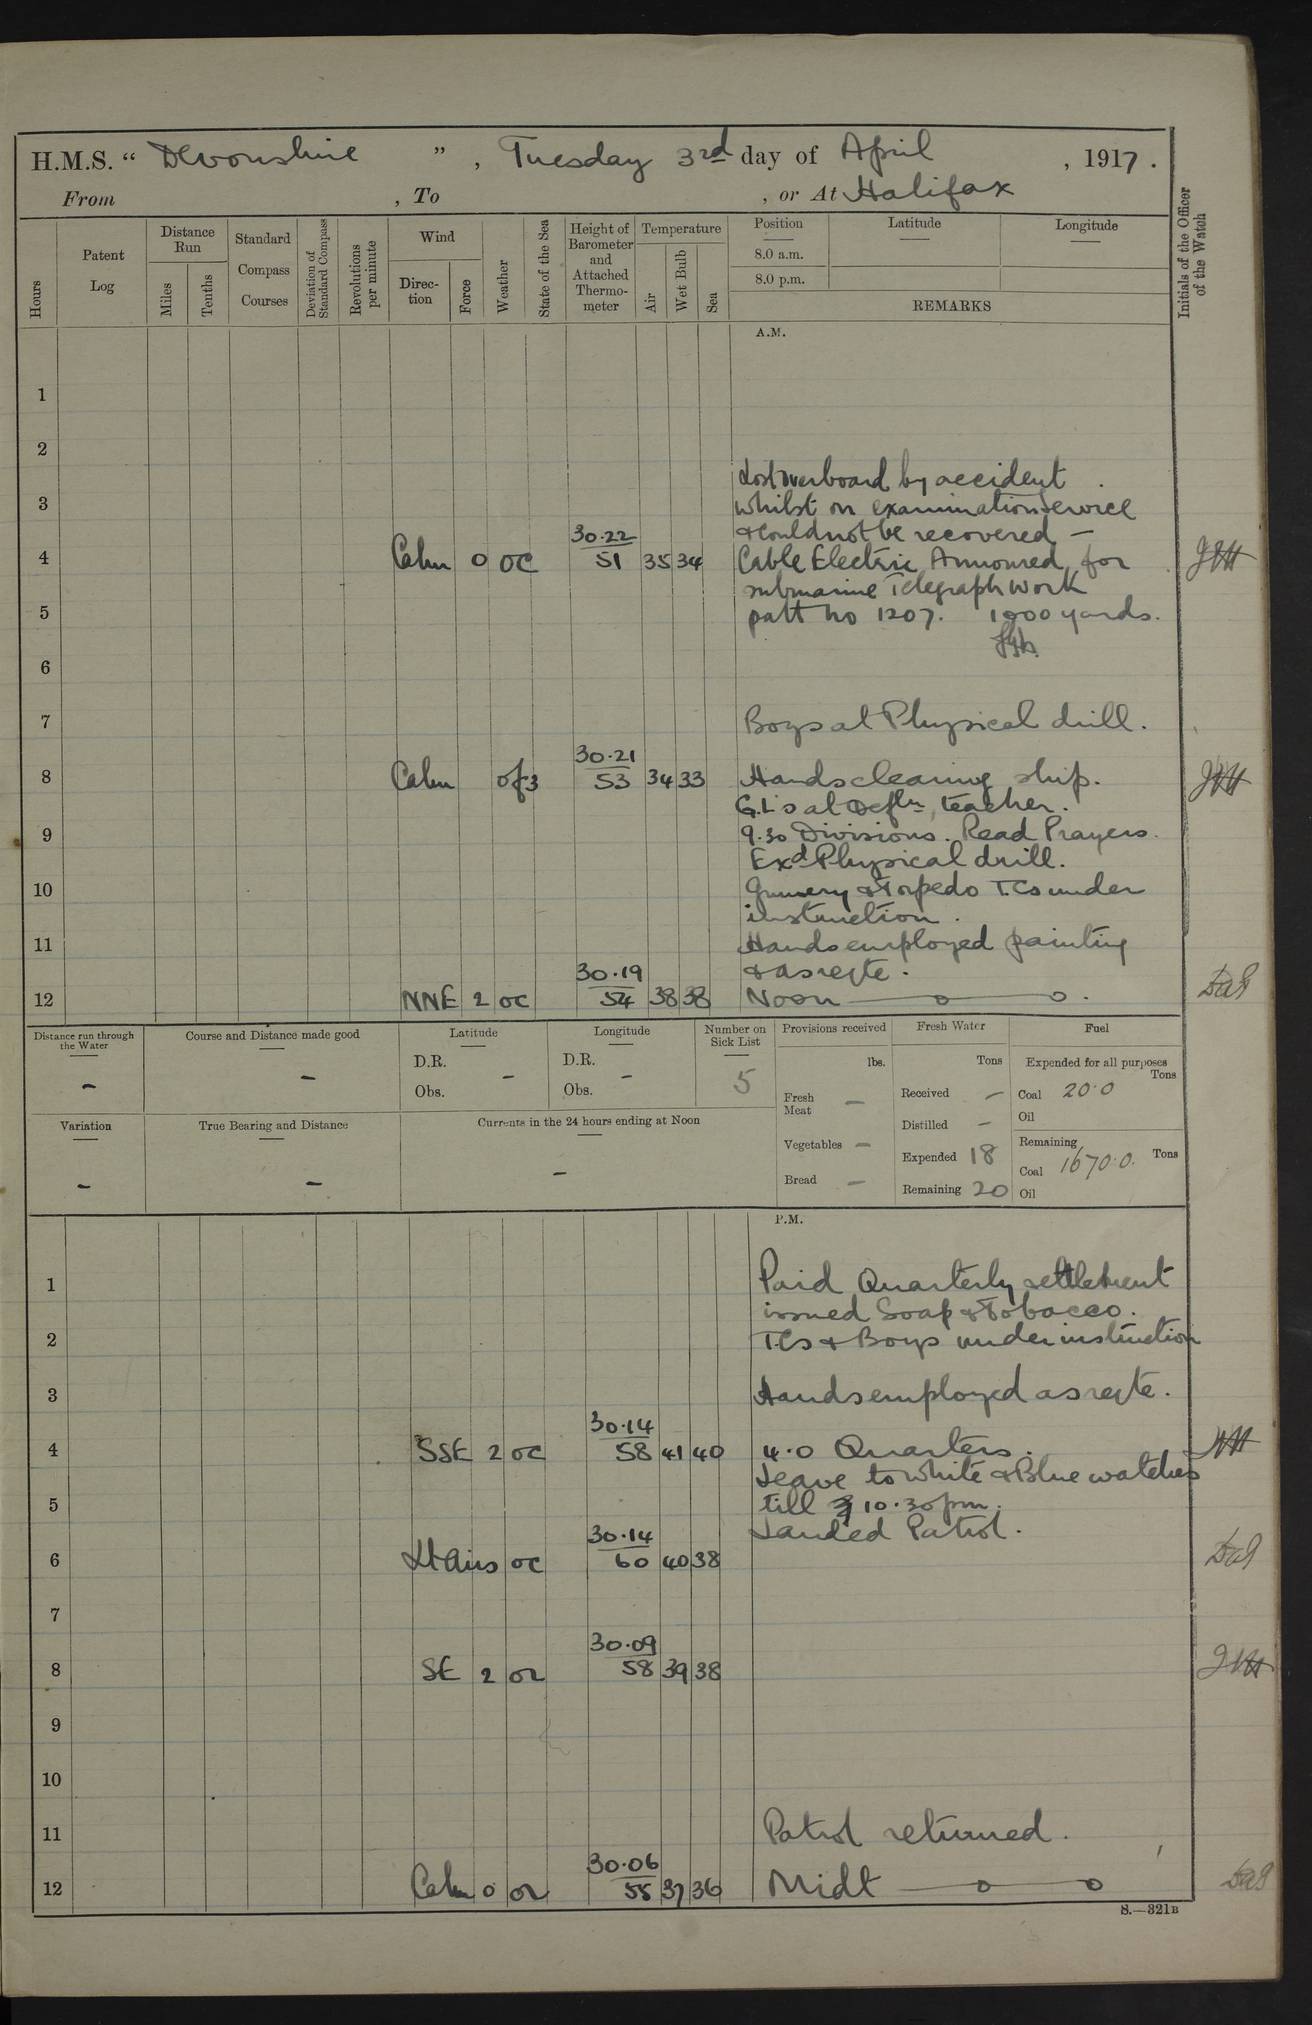 H.M.S. " Devonshire ", Tuesday 3rd day of April, 1917.
From , To , or At Halifax
Hours
Patent Log
Distance Run
Miles
Tenths
Standard Compass Courses
Deviation of Standard Compass
Revolutions per minute
Wind
Direction
Force
Weather
State of the Sea
Height of Barometer and Attached Thermometer
Temperature
Air
Wet Bulb
Sea
Position
8.0 a.m.
8.0 p.m.
Latitude
Longitude
REMARKS
Initials of the Officer of the Watch
A.M.
1
2
Lost overboard by accident
3 whilst on examination service
& could not be recovered —
4 Calm 0 oc 30.22 51 35 34 Cable Electric Armoured for
submarine Telegraph work
5 patt no 1207. 1000 yards.
6
7 Boys at Physical drill.
8 Calm of3 30.21 53 34 33 Hands cleaning ship.
G.L's at Defln teacher.
9 9.30 Divisions. Read Prayers.
Exd Physical drill.
10 Gunnery & Torpedo T.Cs under
instruction.
11 Hands employed painting
& as reqte.
12 NNE 2 oc 30.19 54 38 38 Noon
Distance run through the Water
-
Course and Distance made good
-
Latitude
D.R.
Obs.
-
Longitude
D.R.
Obs.
-
Number on Sick List
5
Provisions received
lbs.
Fresh Meat —
Vegetables —
Bread —
Fresh Water
Tons
Received —
Distilled —
Expended 18
Remaining 20
Fuel
Expended for all purposes
Tons
Coal 20.0
Oil
Remaining
Tons
Coal 1670.0.
Oil
Variation
-
True Bearing and Distance
-
Currents in the 24 hours ending at Noon
-
P.M.
1 Paid Quarterly settlement
issued Soap & Tobacco.
2 T.Cs & Boys under instruction
3 Hands employed as reqte.
4 SSE 2 oc 30.14 58 41 40 4.0 Quarters.
Leave to White & Blue watches
5 till 10.30pm.
Landed Patrol.
6 Lt Airs oc 30.14 60 40 38
7
8 SE 2 or 30.09 58 39 38
9
10
11 Patrol returned.
12 Calm 0 or 30.06 55 37 36 Midt
S.—321B